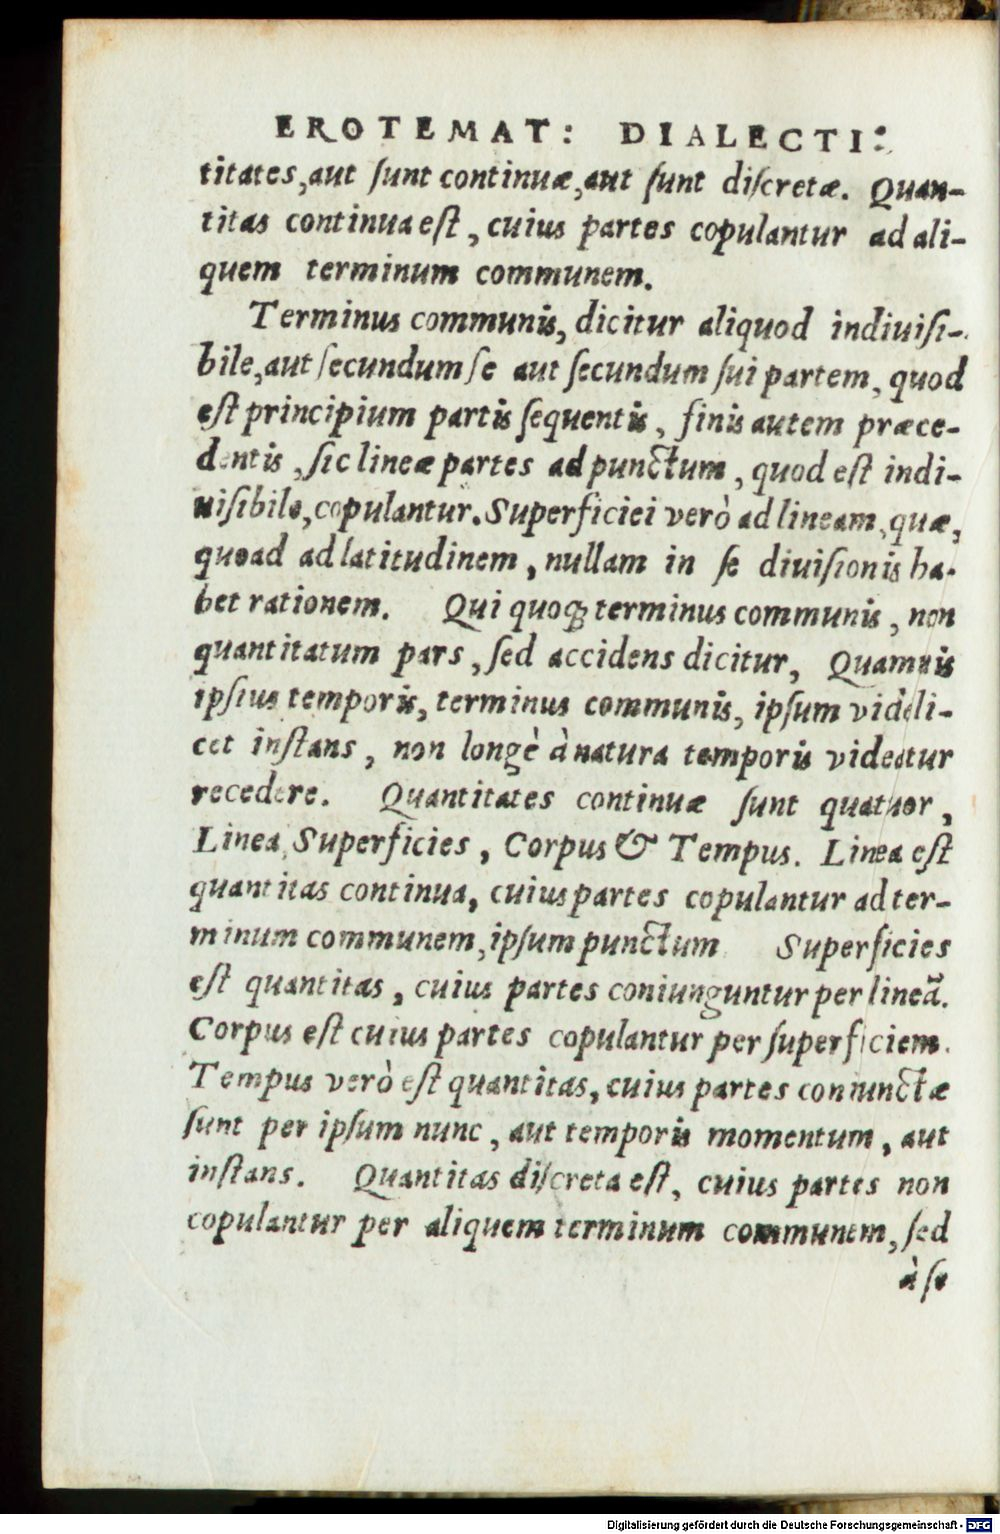 EROTEMAT: DIALECTI:
titates, aut ſunt continuæ, aut ſunt diſcretæ. Quan-
titas continua eſt, cuius partes copulantur ad ali-
quem terminum communem.
Terminus communis, dicitur aliquod indiuiſi-
bile, aut ſecundum ſe aut ſecundum ſui partem, quod
eſt principium partis ſequentis, finis autem præce-
dentis, ſic lineæ partes ad punctum, quod eſt indi-
uiſibile, copulantur. Superficiei verò ad lineam, quæ,
quoad ad latitudinem, nullam in ſe diuiſionis ha-
bet rationem. Qui quoqꝫ terminus communis, non
quantitatum pars, ſed accidens dicitur, Quamuis
ipſius temporis, terminus communis, ipſum videli-
cet inſtans, non longè à natura temporis videatur
recedere. Quantitates continuæ ſunt quatuor,
Linea, Superficies, Corpus & Tempus. Linea eſt
quantitas continua, cuius partes copulantur ad ter-
minum communem, ipſum punctum Superficies
eſt quantitas, cuius partes coniunguntur per lineã.
Corpus eſt cuius partes copulantur per ſuperficiem.
Tempus verò eſt quantitas, cuius partes coniunctæ
ſunt per ipſum nunc, aut temporis momentum, aut
inſtans. Quantitas diſcreta eſt, cuius partes non
copulantur per aliquem terminum communem, ſed
à ſe
Digitalisierung gefördert durch die Deutsche Forschungsgemeinschaft - DFG